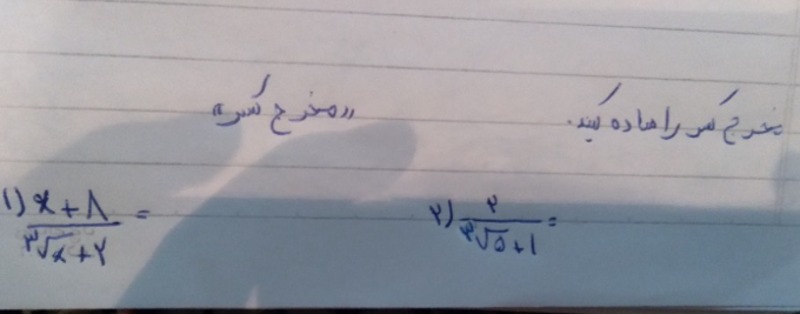 مخرج کسر را ساده کنید.
«مخرج کسر»
۱) x+۸ / ۳√x+۲ =
۲) ۲ / ۳√۵+۱ =